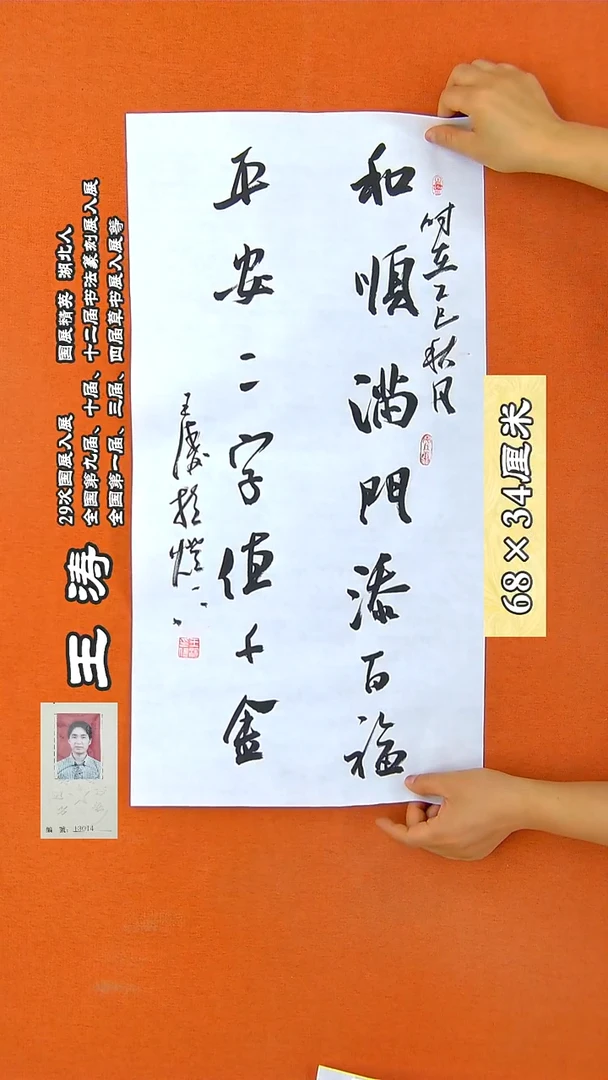 时在乙巳秋月
和順满門添百福
平安二字值千金
王涛
29次国展入展 国展精英 湖北人
全国第九届、十届、十二届书法篆刻展入展
全国第一届、三届、四届草书展入展等
68×34厘米